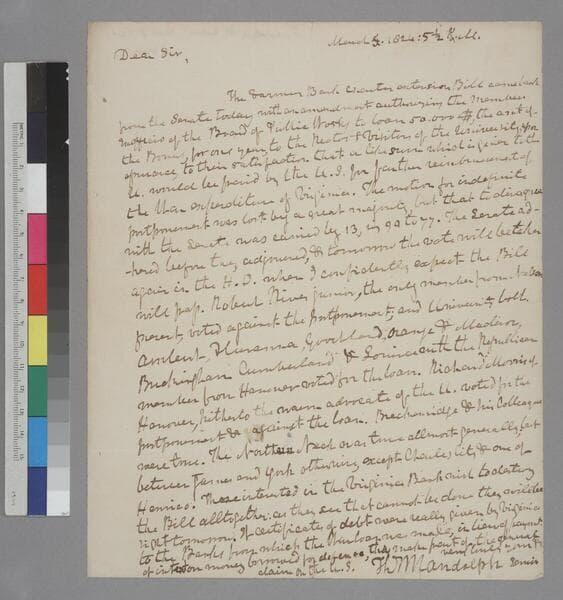 March 3. 1824: 5½ P.M.
Dear Sir,
The Farmers Bank Charter extension Bill came back
from the Senate today with an amendment authorizing the Members
of the Board of Public Works to loan 50.000 $, the out of
the Bonus, for one year to the Rector & Visitors of the University, upon
assurance to their satisfaction that a like sum which is given to the
U. would be paid by the U.S. for further reimbursement of
the War expenditure of Virginia. The motion for indefinite
postponement was lost by a great majority but that to disagree
with the Senate was carried by 13, is 90 to 77. The Senate ad-
hered before they adjourned, & tomorrow the vote will be taken
again in the H.D. when I confidently expect the Bill
will pass. Robert Rives junior, the only member from Nelson
present, voted against the postponement, and
Amherst, Fluvanna, Goochland, Orange & Madison,
Buckingham Cumberland & Louisa with the Republican
member from Hanover voted for the loan. Richard Morris of
Hanover, hitherto the warm advocate of the U. voted for the
postponement & against the loan. Breckenridge & his Colleague
were true. The Northern Neck was true allmost generally, but
between James and York otherwise except Charles City & one of
Henrico. Those interested in the Virginia Bank wish to destroy
the Bill alltogether: as they see that cannot be done they will be
right tomorrow. If certificates of debt were really given by Virginia
to the Banks from which the War loan was made, in lieu of payment
of interest on money borrowed for defence, they make part of the general
claim on the U.S.
very truly yours
Th M Randolph